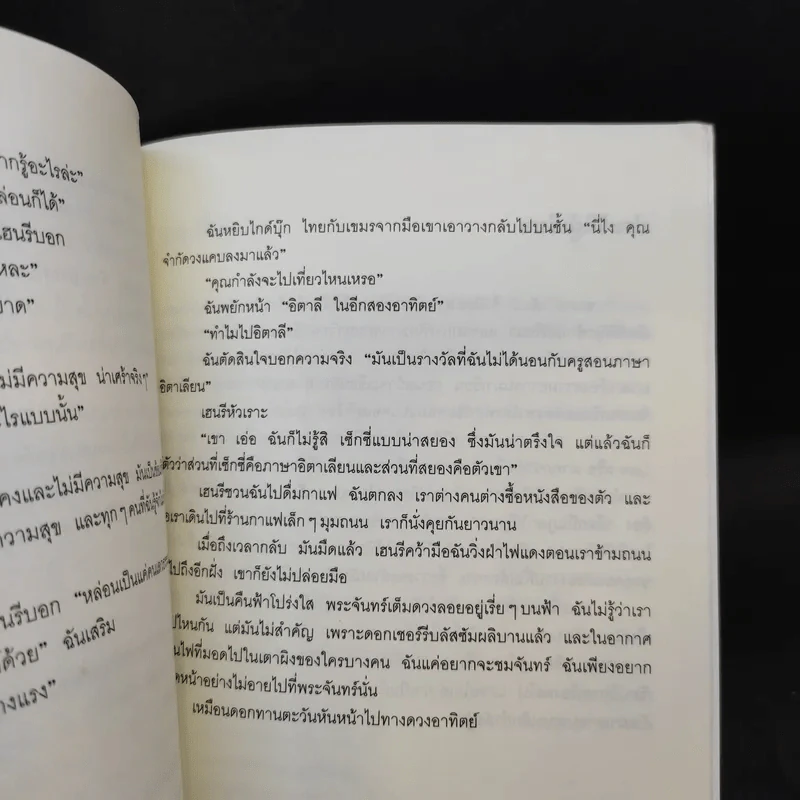 ากรู้อะไรล่ะ”
ล่อนก็ได้”
เฮนรีบอก
หละ”
ขาด”
ไม่มีความสุข น่าเศร้าจริงๆ
ไรแบบนั้น”
คงและไม่มีความสุข
ความสุข และทุกๆ คนที่
นรีบอก “หล่อนเป็นแค่คน
ด้วย” ฉันเสริม
างแรง”
ฉันหยิบไกด์บุ๊ก ไทยกับเขมรจากมือเขาเอาวางกลับไปบนชั้น “นี่ไง คุณ
จำกัดวงแคบลงมาแล้ว”
“คุณกำลังจะไปเที่ยวไหนเหรอ”
ฉันพยักหน้า “อิตาลี ในอีกสองอาทิตย์”
“ทำไมไปอิตาลี”
ฉันตัดสินใจบอกความจริง “มันเป็นรางวัลที่ฉันไม่ได้นอนกับครูสอนภาษา
อิตาเลียน”
เฮนรีหัวเราะ
“เขา เอ่อ ฉันก็ไม่รู้สิ เซ็กซี่แบบน่าสยอง ซึ่งมันน่าตรึงใจ แต่แล้วฉันก็
ตัวว่าส่วนที่เซ็กซี่คือภาษาอิตาเลียนและส่วนที่สยองคือตัวเขา”
เฮนรีชวนฉันไปดื่มกาแฟ ฉันตกลง เราต่างคนต่างซื้อหนังสือของตัว และ
อเราเดินไปที่ร้านกาแฟเล็กๆ มุมถนน เราก็นั่งคุยกันยาวนาน
เมื่อถึงเวลากลับ มันมืดแล้ว เฮนรีคว้ามือฉันวิ่งฝ่าไฟแดงตอนเราข้ามถนน
ไปถึงอีกฝั่ง เขาก็ยังไม่ปล่อยมือ
มันเป็นคืนฟ้าโปร่งใส พระจันทร์เต็มดวงลอยอยู่เรี่ยๆ บนฟ้า ฉันไม่รู้ว่าเรา
ปไหนกัน แต่มันไม่สำคัญ เพราะดอกเชอร์รีบลัสซัมผลิบานแล้ว และในอากาศ
นไฟที่มอดไปในเตาผิงของใครบางคน ฉันแค่อยากจะชมจันทร์ ฉันเพียงอยาก
ดหน้าอย่างไม่อายไปที่พระจันทร์นั่น
เหมือนดอกทานตะวันหันหน้าไปทางดวงอาทิตย์